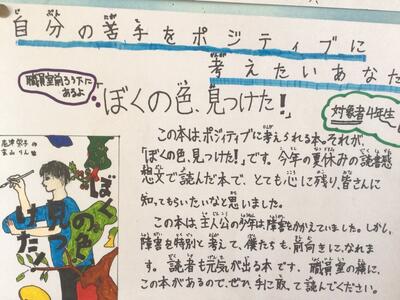 自分の苦手をポジティブに
考えたいあなた
職員室前ろう下に
あるよ
「ぼくの色、見つけた!」
対象者4年生
この本は、ポジティブに考えられる本。それが、
「ぼくの色、見つけた!」です。今年の夏休みの読書感
想文で読んだ本で、とても心に残り、皆さんに
知ってもらいたいなと思いました。
この本は、主人公の少年は、障害をかかえていました。しかし、
障害を特別と考えて、僕たちも、前向きになれま
す。読者も元気が出る本です。職員室の横に、
この本があるので、ぜひ、手に取って読んでください。
志津栄子 作
末山りん 絵
ぼくの色
見つ
けた!